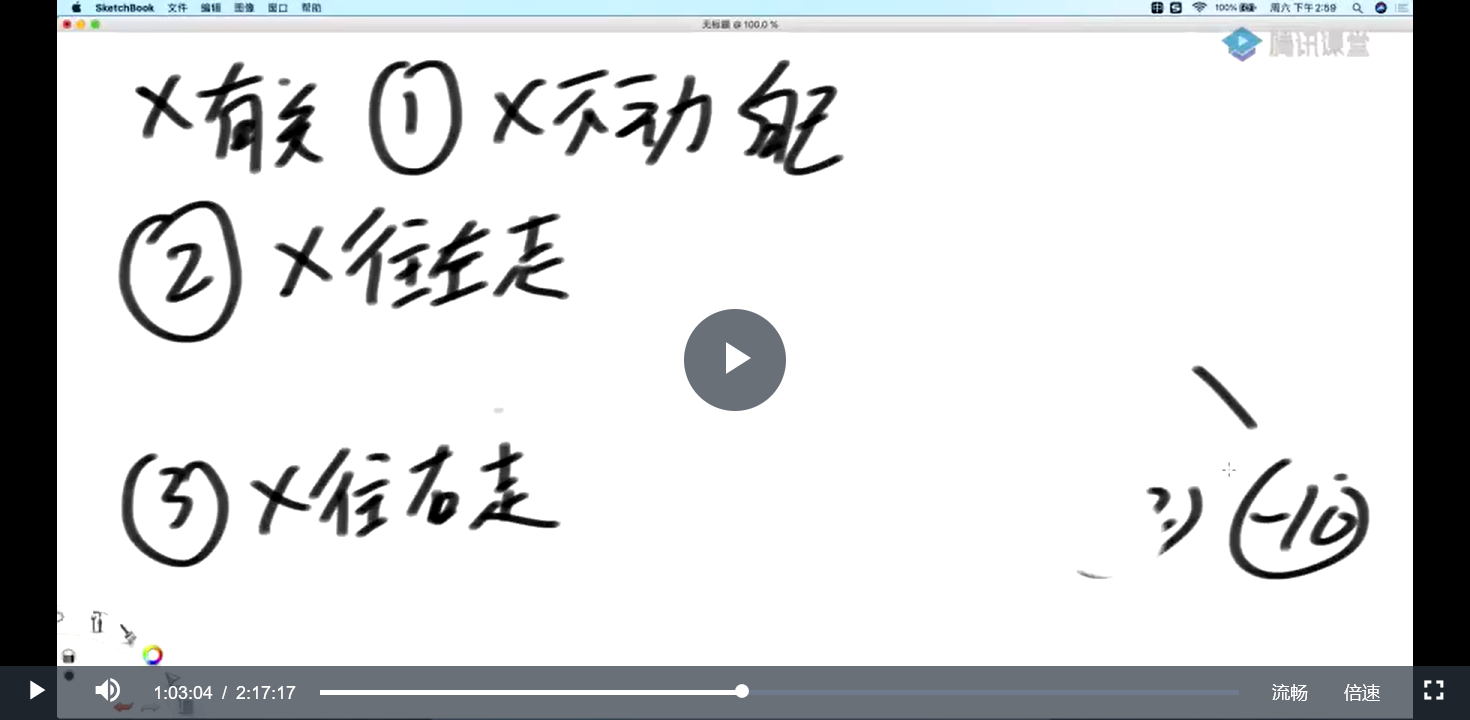 SketchBook 文件 编辑 图像 窗口 帮助 100% 周六 下午2:59
无标题 @ 100.0 %
腾讯课堂
X有关 ① X不动 配
② X往左走
③ X往右走
(-10)
1:03:04 / 2:17:17 流畅 倍速